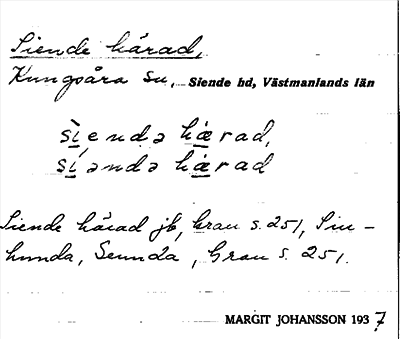 Siende härad,
Kungsåra sn, Siende hd, Västmanlands län
si̱ende hæ̱rad,
sí̱ǝndǝ hæ̱rad
Siende härad jb, Grau s. 251, Sin-
hunda, Seunda, Grau s. 251.
MARGIT JOHANSSON 1937